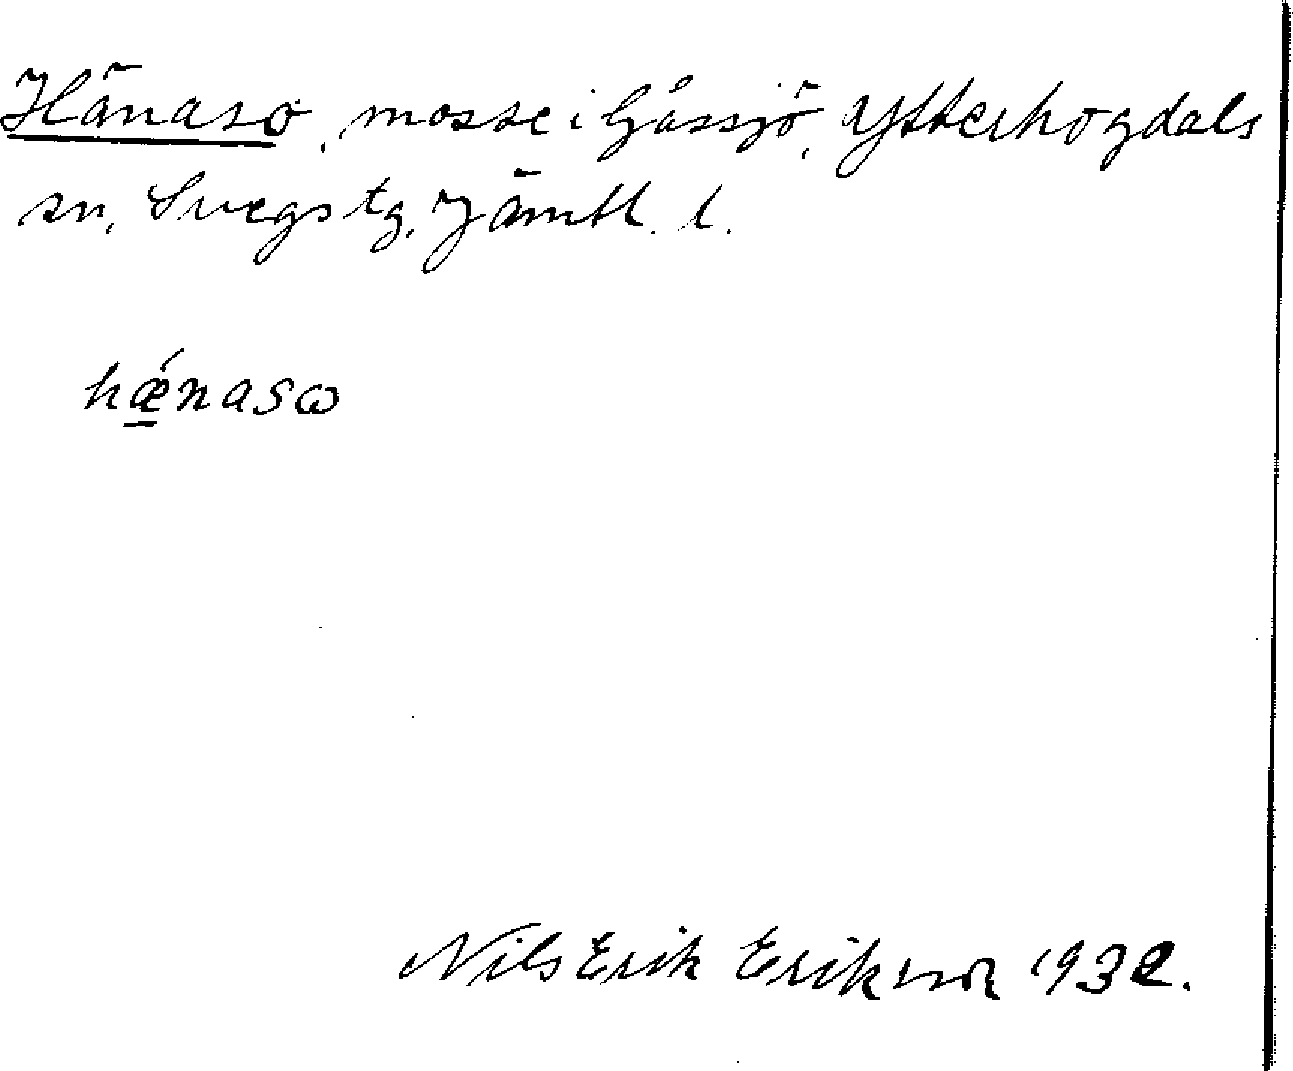 Hänaso, mosse i Gåssjö, Ytterhogdals
sn, Svegs tg, Jämtl. l.
hǽnasω
Nils Erik Erikson 1932.